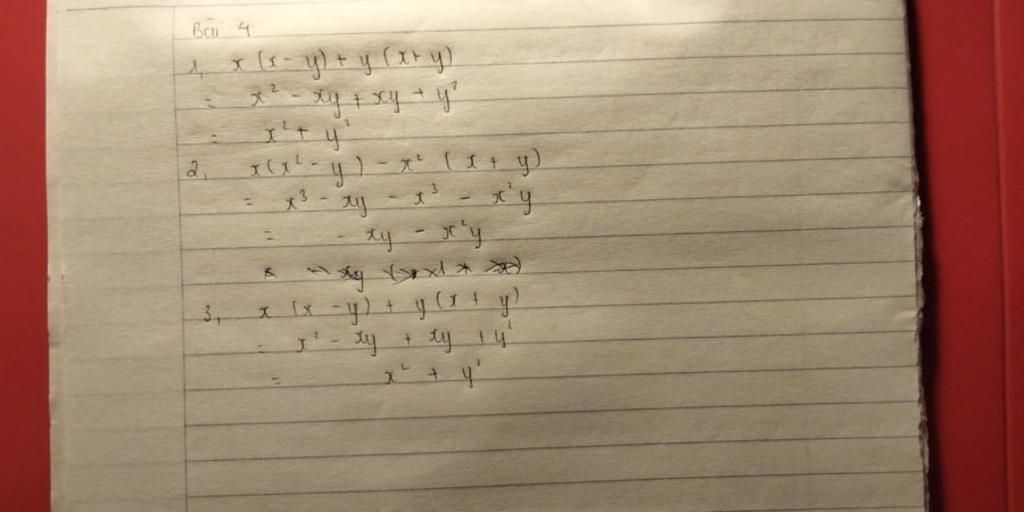 Bài 4
1, x (x - y) + y (x + y)
= x² - xy + xy + y²
= x² + y²
2, x(x² - y) - x² (x + y)
= x³ - xy - x³ - x²y
= - xy - x²y
3, x (x - y) + y (x + y)
= x² - xy + xy + y²
= x² + y²